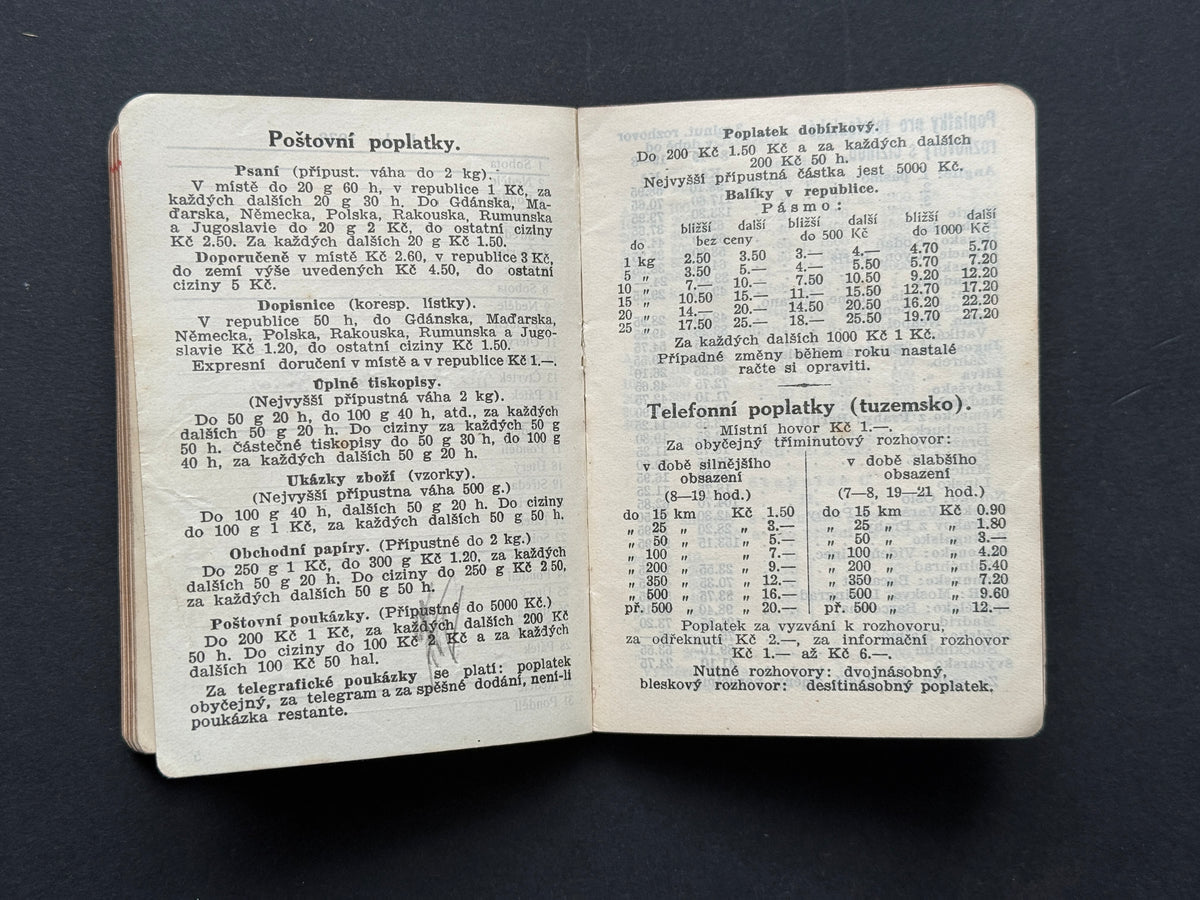 Poštovní poplatky.
Psaní (přípust. váha do 2 kg).
V místě do 20 g 60 h, v republice 1 Kč, za
každých dalších 20 g 30 h. Do Gdánska, Ma-
ďarska, Německa, Polska, Rakouska, Rumunska
a Jugoslavie do 20 g 2 Kč, do ostatní ciziny
Kč 2.50. Za každých dalších 20 g Kč 1.50.
Doporučeně v místě Kč 2.60, v republice 3 Kč,
do zemí výše uvedených Kč 4.50, do ostatní
ciziny 5 Kč.
Dopisnice (koresp. lístky).
V republice 50 h, do Gdánska, Maďarska,
Německa, Polska, Rakouska, Rumunska a Jugo-
slavie Kč 1.20, do ostatní ciziny Kč 1.50.
Expresní doručení v místě a v republice Kč 1.—.
Úplné tiskopisy.
(Nejvyšší přípustná váha 2 kg).
Do 50 g 20 h, do 100 g 40 h, atd., za každých
dalších 50 g 20 h. Do ciziny za každých 50 g
50 h. Částečné tiskopisy do 50 g 30 h, do 100 g
40 h, za každých dalších 50 g 20 h.
Ukázky zboží (vzorky).
(Nejvyšší přípustna váha 500 g.)
Do 100 g 40 h, dalších 50 g 20 h. Do ciziny
do 100 g 1 Kč, za každých dalších 50 g 50 h.
Obchodní papíry. (Přípustné do 2 kg.)
Do 250 g 1 Kč, do 300 g Kč 1.20, za každých
dalších 50 g 20 h. Do ciziny do 250 g Kč 2.50,
za každých dalších 50 g 50 h.
Poštovní poukázky. (Přípustné do 5000 Kč.)
Do 200 Kč 1 Kč, za každých dalších 200 Kč
50 h. Do ciziny do 100 Kč 2 Kč a za každých
dalších 100 Kč 50 hal.
Za telegrafické poukázky se platí: poplatek
obyčejný, za telegram a za spěšné dodání, není-li
poukázka restante.
Poplatek dobírkový.
Do 200 Kč 1.50 Kč a za každých dalších
200 Kč 50 h.
Nejvyšší přípustná částka jest 5000 Kč.
Balíky v republice.
Pásmo:
bližší další bližší další bližší další
do bez ceny do 500 Kč do 1000 Kč
1 kg 2.50 3.50 3.— 4.— 4.70 5.70
5 „ 3.50 5.— 4.— 5.50 5.70 7.20
10 „ 7.— 10.— 7.50 10.50 9.20 12.20
15 „ 10.50 15.— 11.— 15.50 12.70 17.20
20 „ 14.— 20.— 14.50 20.50 16.20 22.20
25 „ 17.50 25.— 18.— 25.50 19.70 27.20
Za každých dalších 1000 Kč 1 Kč.
Případné změny během roku nastalé
račte si opraviti.
Telefonní poplatky (tuzemsko).
Místní hovor Kč 1.—.
Za obyčejný tříminutový rozhovor:
v době silnějšího v době slabšího
obsazení obsazení
(8—19 hod.) (7—8, 19—21 hod.)
do 15 km Kč 1.50 do 15 km Kč 0.90
„ 25 „ „ 3.— „ 25 „ „ 1.80
„ 50 „ „ 5.— „ 50 „ „ 3.—
„ 100 „ „ 7.— „ 100 „ „ 4.20
„ 200 „ „ 9.— „ 200 „ „ 5.40
„ 350 „ „ 12.— „ 350 „ „ 7.20
„ 500 „ „ 16.— „ 500 „ „ 9.60
př. 500 „ „ 20.— př. 500 „ „ 12.—
Poplatek za vyzvání k rozhovoru,
za odřeknutí Kč 2.—, za informační rozhovor
Kč 1.— až Kč 6.—.
Nutné rozhovory: dvojnásobný,
bleskový rozhovor: desítinásobný poplatek.